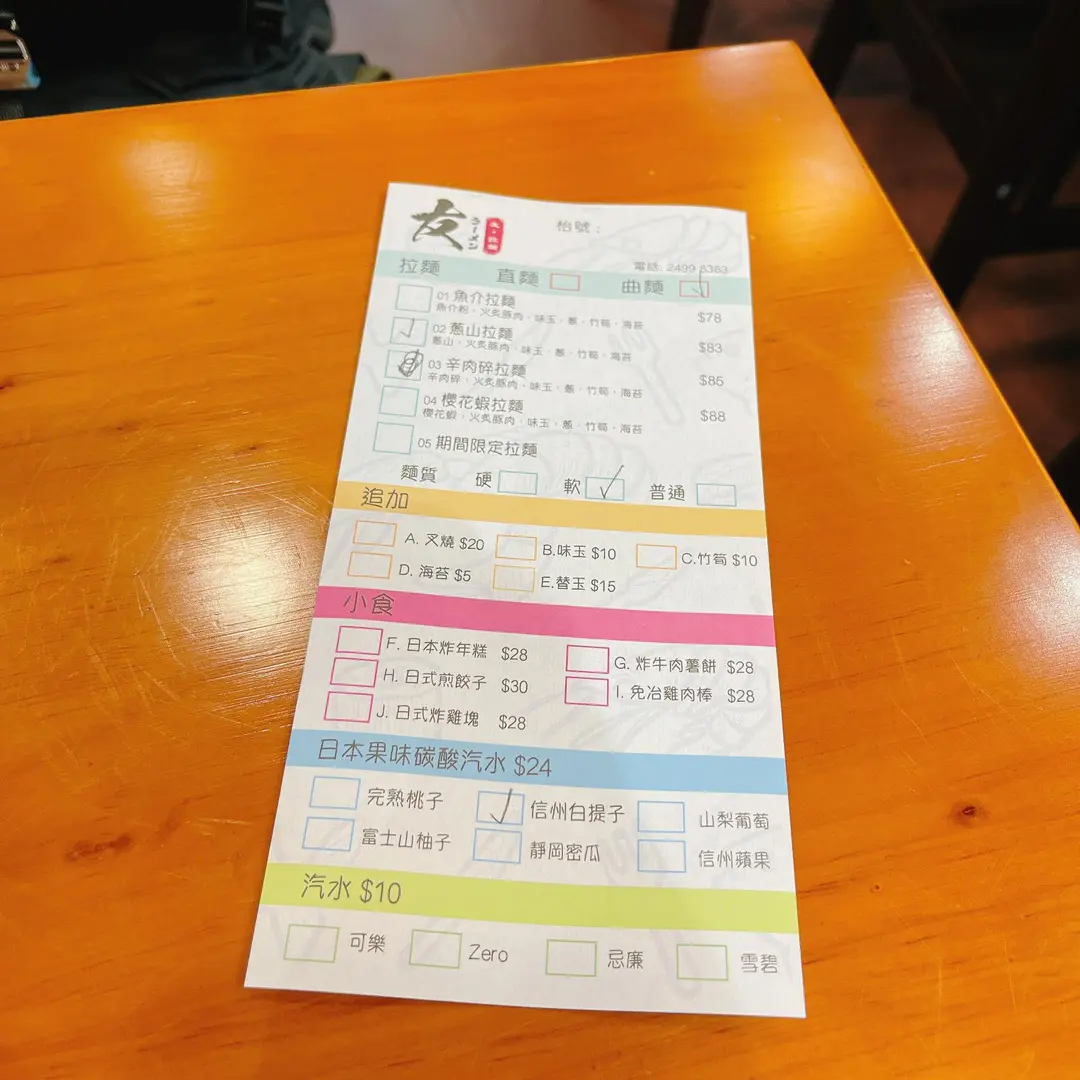 友 ラーメン
枱號：
電話: 2499 8383
拉麵 直麵 曲麵
01 魚介拉麵 $78
魚介粉，火炙豚肉，味玉，蔥，竹筍，海苔
02 蔥山拉麵 $83
蔥山，火炙豚肉，味玉，蔥，竹筍，海苔
03 辛肉碎拉麵 $85
辛肉碎，火炙豚肉，味玉，蔥，竹筍，海苔
04 櫻花蝦拉麵 $88
櫻花蝦，火炙豚肉，味玉，蔥，竹筍，海苔
05 期間限定拉麵
麵質 硬 軟 普通
追加
A. 叉燒 $20 B.味玉 $10 C.竹筍 $10
D. 海苔 $5 E.替玉 $15
小食
F. 日本炸年糕 $28 G. 炸牛肉薯餅 $28
H. 日式煎餃子 $30 I. 免冶雞肉棒 $28
J. 日式炸雞塊 $28
日本果味碳酸汽水 $24
完熟桃子 信州白提子 山梨葡萄
富士山柚子 靜岡密瓜 信州蘋果
汽水 $10
可樂 Zero 忌廉 雪碧